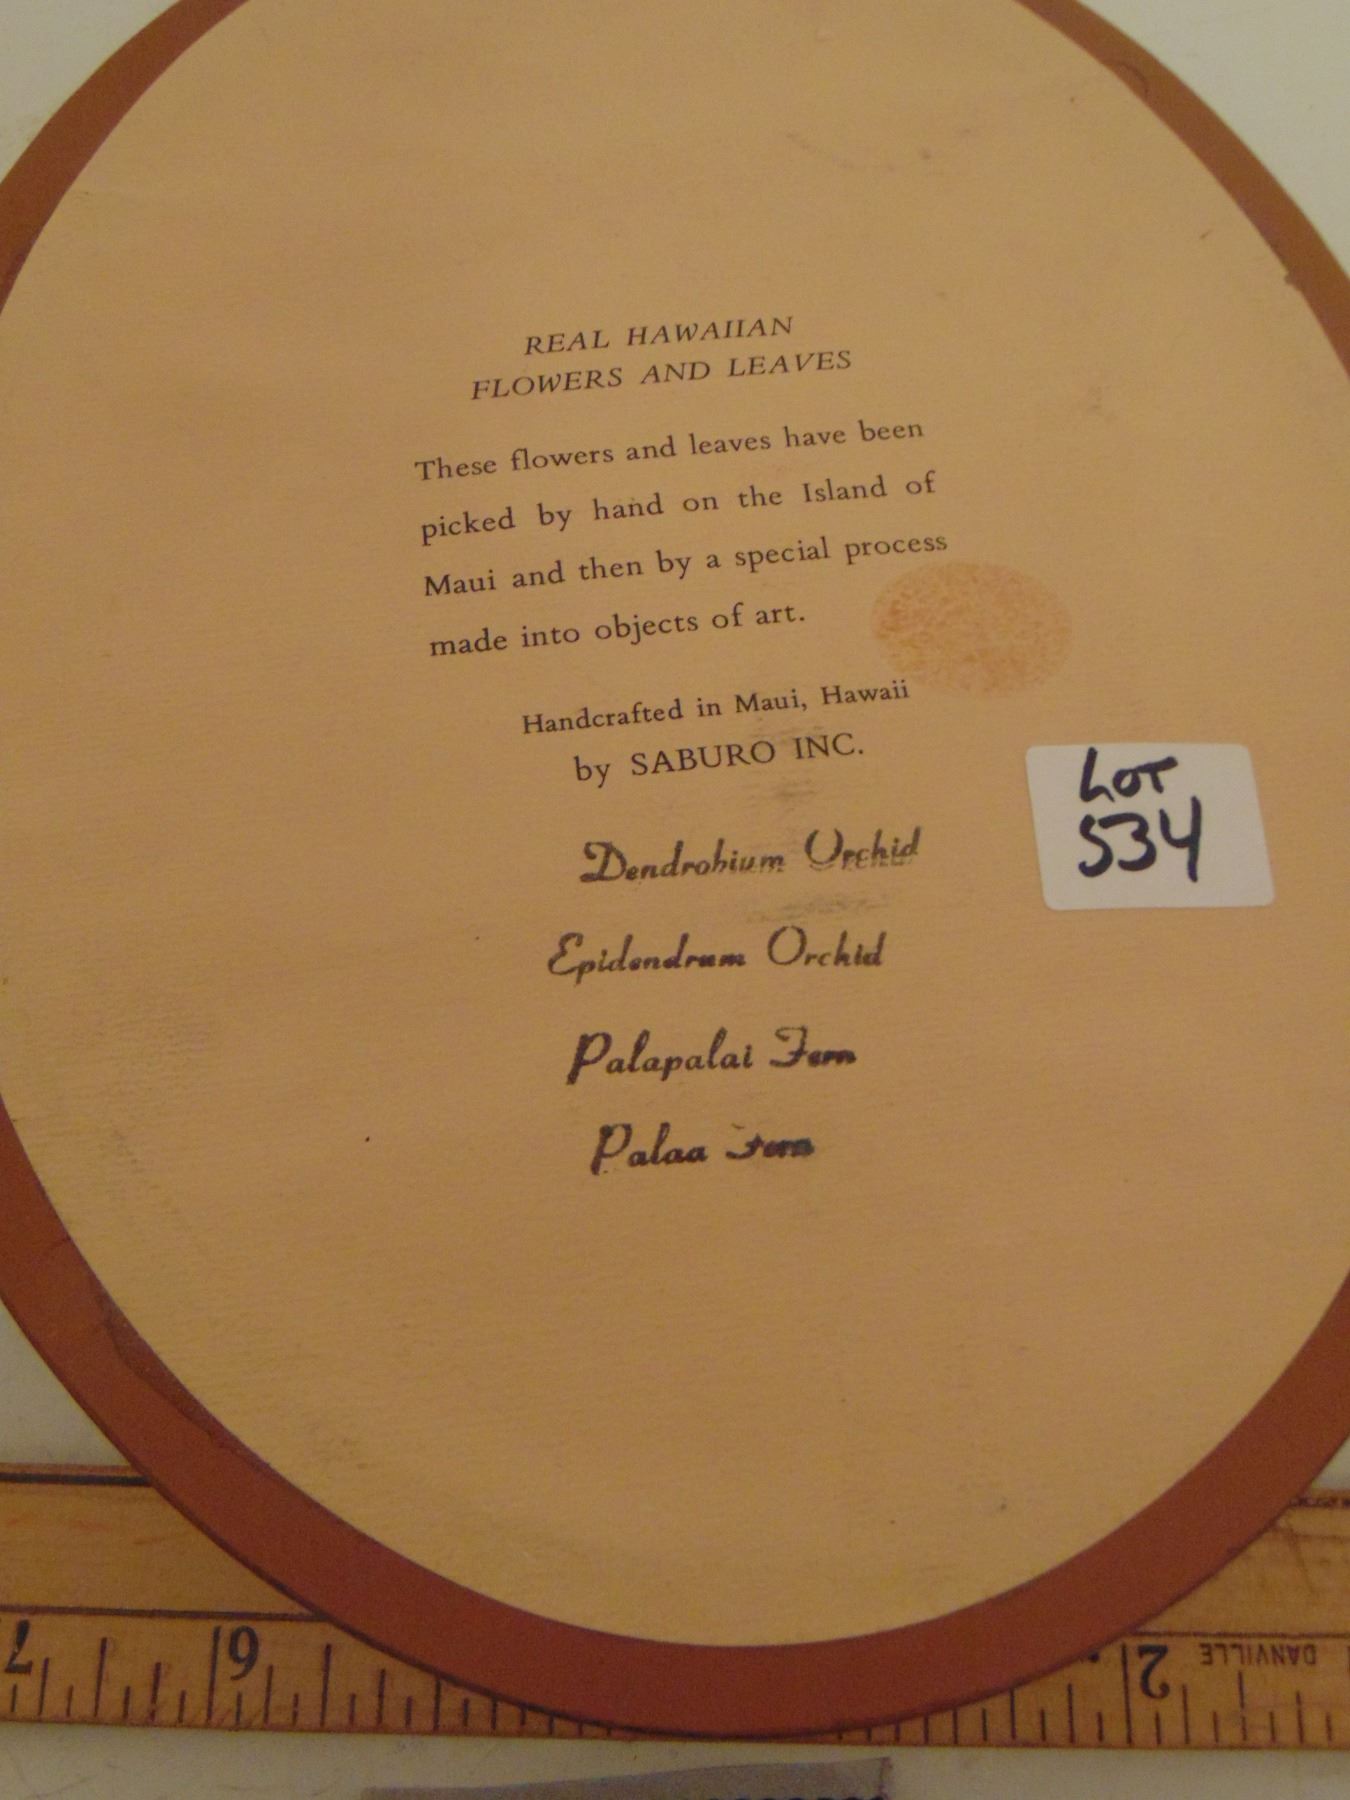 REAL HAWAIIAN
FLOWERS AND LEAVES
These flowers and leaves have been
picked by hand on the Island of
Maui and then by a special process
made into objects of art.
Handcrafted in Maui, Hawaii
by SABURO INC.
Dendrobium Orchid
Epidendrum Orchid
Palapalai Fern
Palaa Fern
LOT
534
7 6 2 DANVILLE